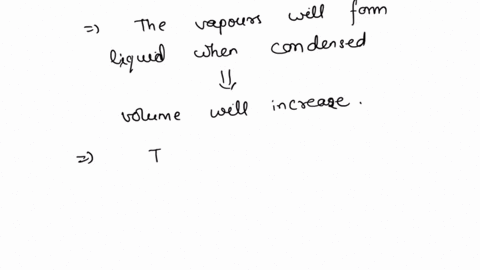 =) The vapours will form
liquid when condensed
⇓
volume will increase.
=) T